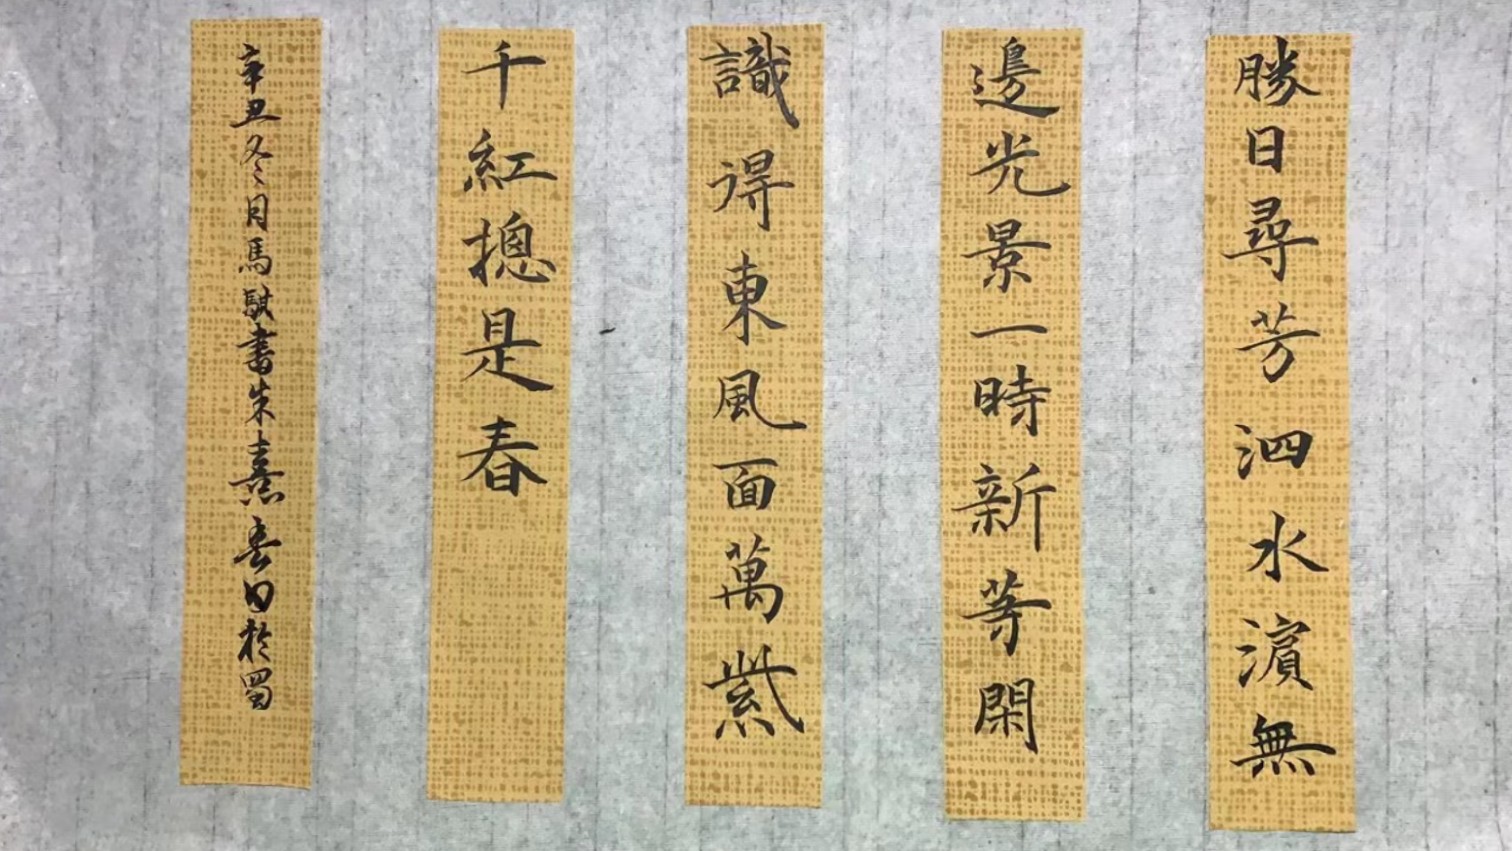 勝日尋芳泗水濵無
邊光景一時新等閑
識得東風面萬紫
千紅摠是春
辛丑冬月馬騏書朱熹春日於蜀